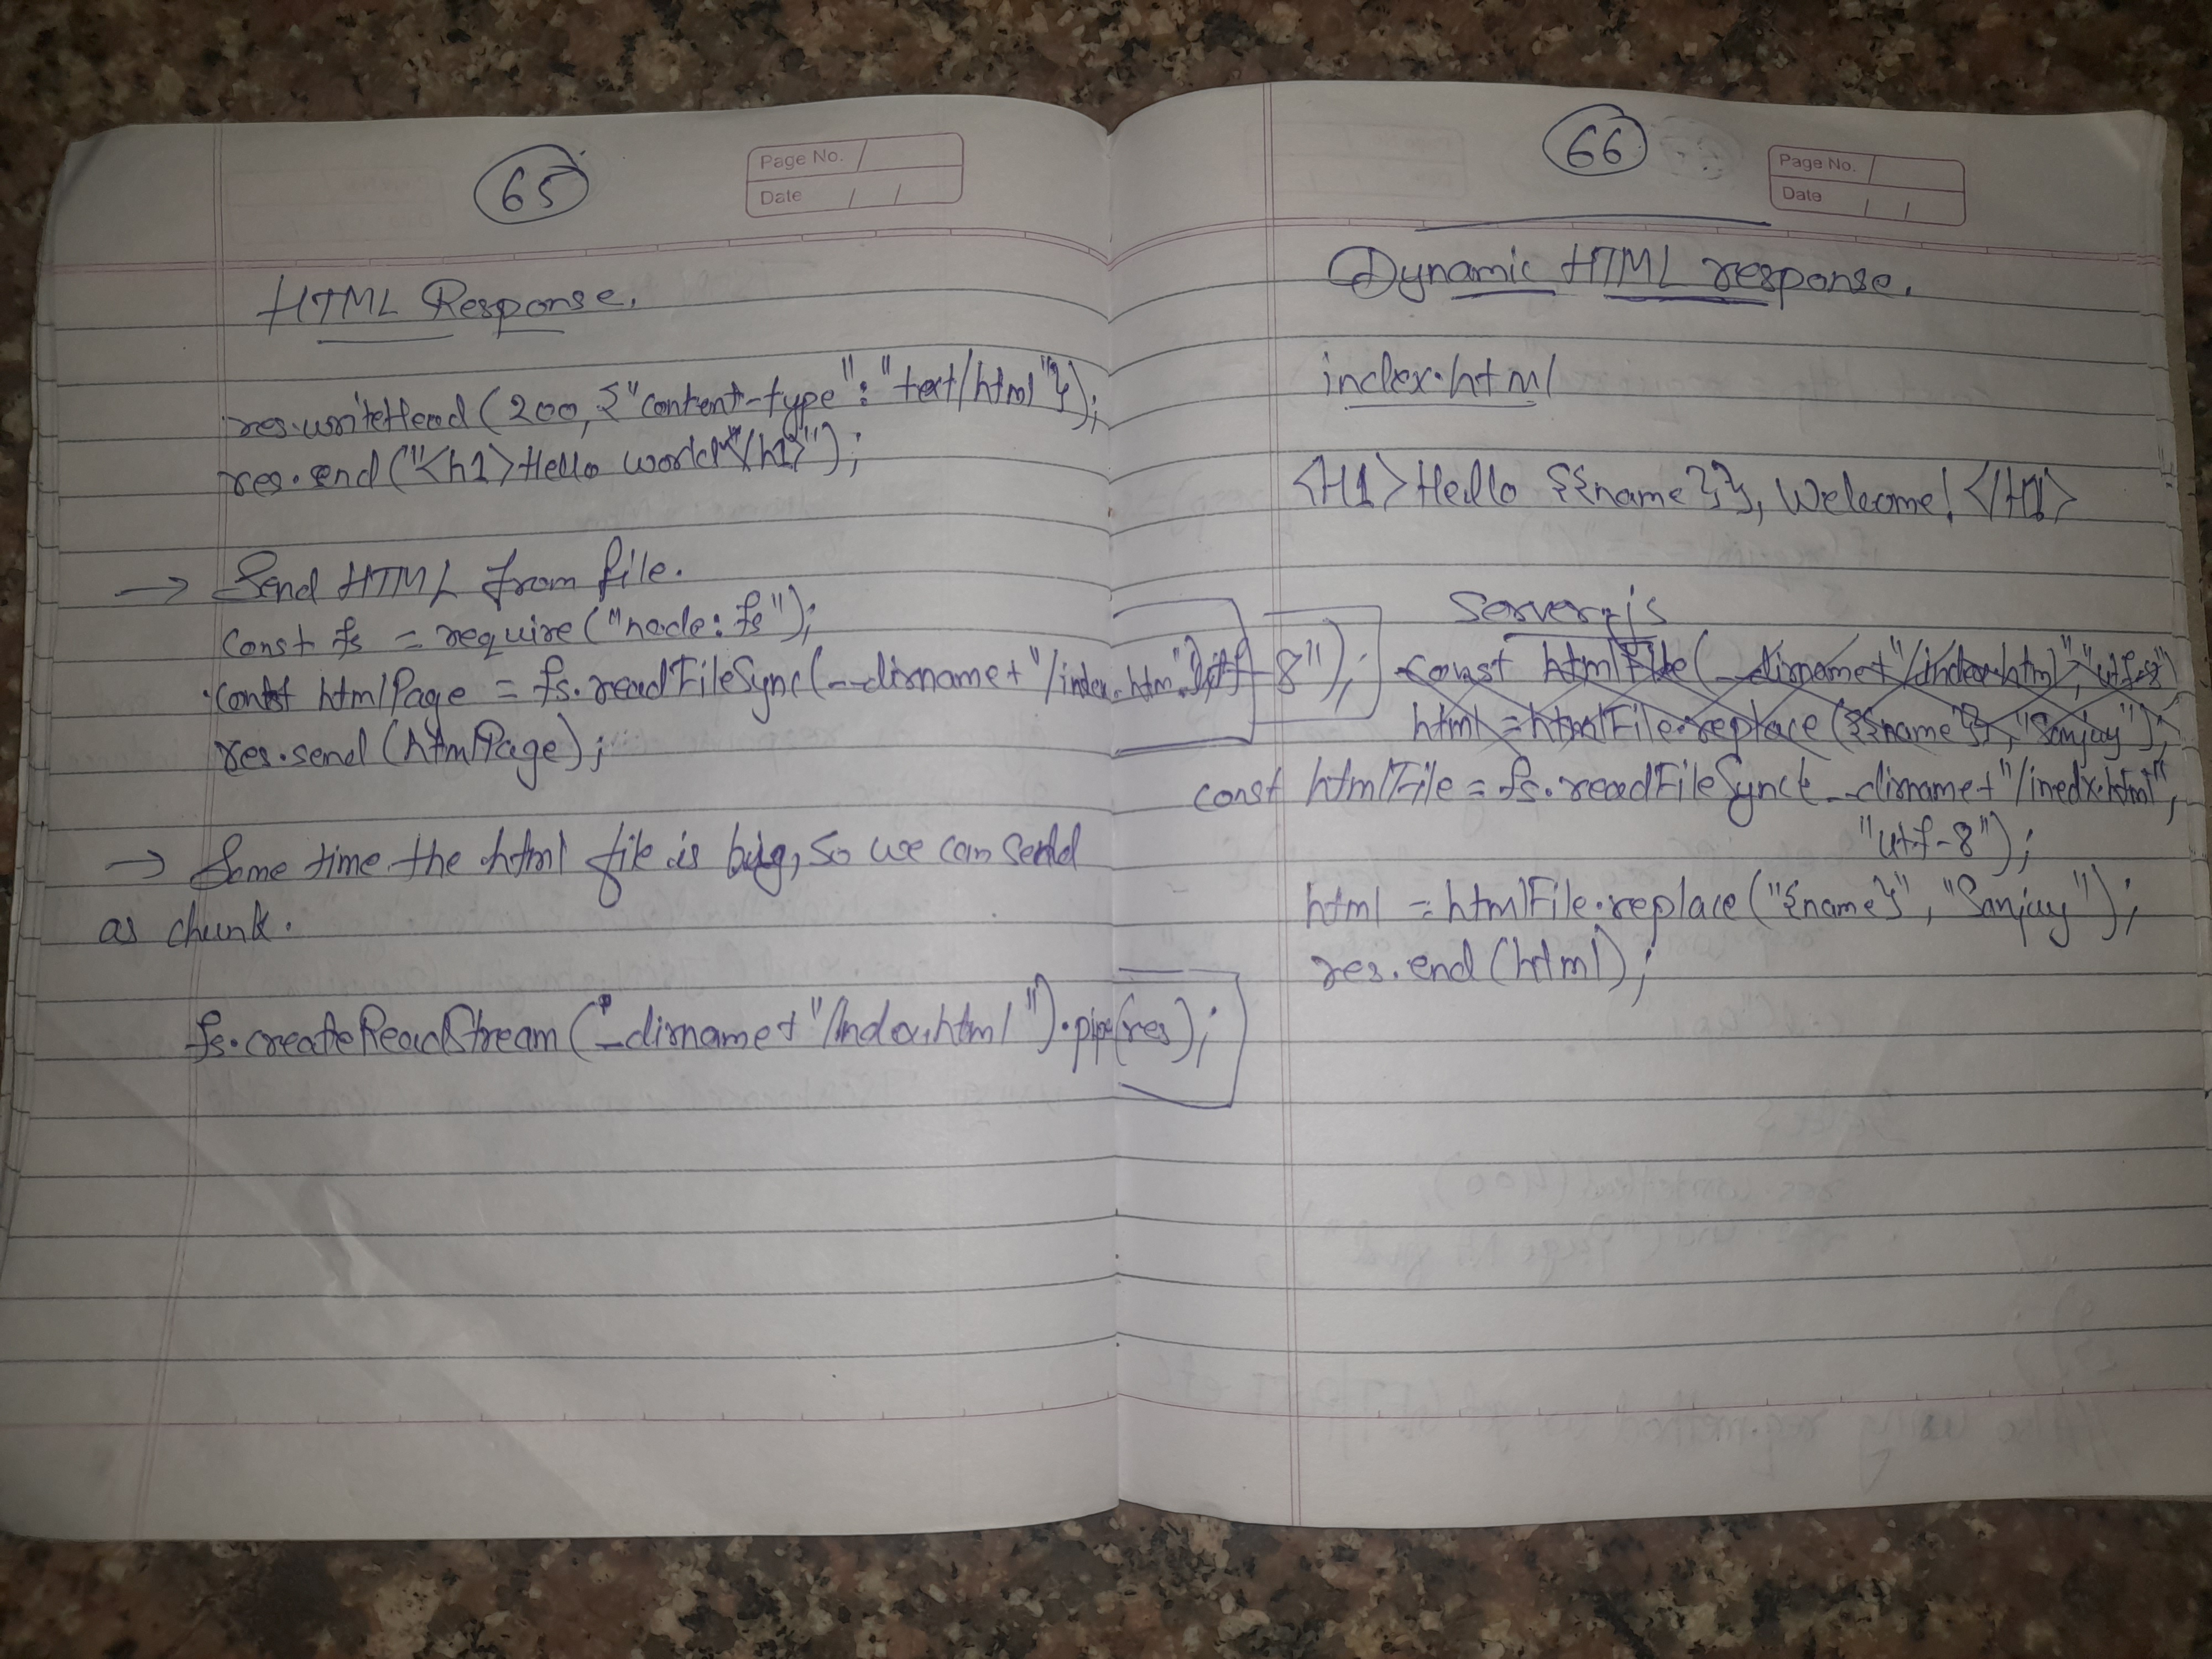 65
Page No.
Date / /
HTML Response.
res.writeHead (200, {"content-type": "text/html"});
res.end ("<h1>Hello world</h1>");
→ Send HTML from file.
const fs = require ("node: fs");
const htmlPage = fs.readFileSync(__dirname + "/index.html", "utf-8");
res.send (htmlPage);
→ Some time the html file is big, so we can send
as chunk.
fs.createReadStream (__dirname + "/index.html").pipe(res);
66
Page No.
Date / /
Dynamic HTML response.
index.html
<H1>Hello {{name}}, Welcome! </H1>
Server.js
const htmlFile (__dirname + "/index.html", "utf-8")
html = htmlFile.replace ({{name}}, "Sanjay");
const htmlFile = fs.readFileSync(__dirname + "/inedx.html",
"utf-8");
html = htmlFile.replace ("{name}", "Sanjay");
res.end (html);